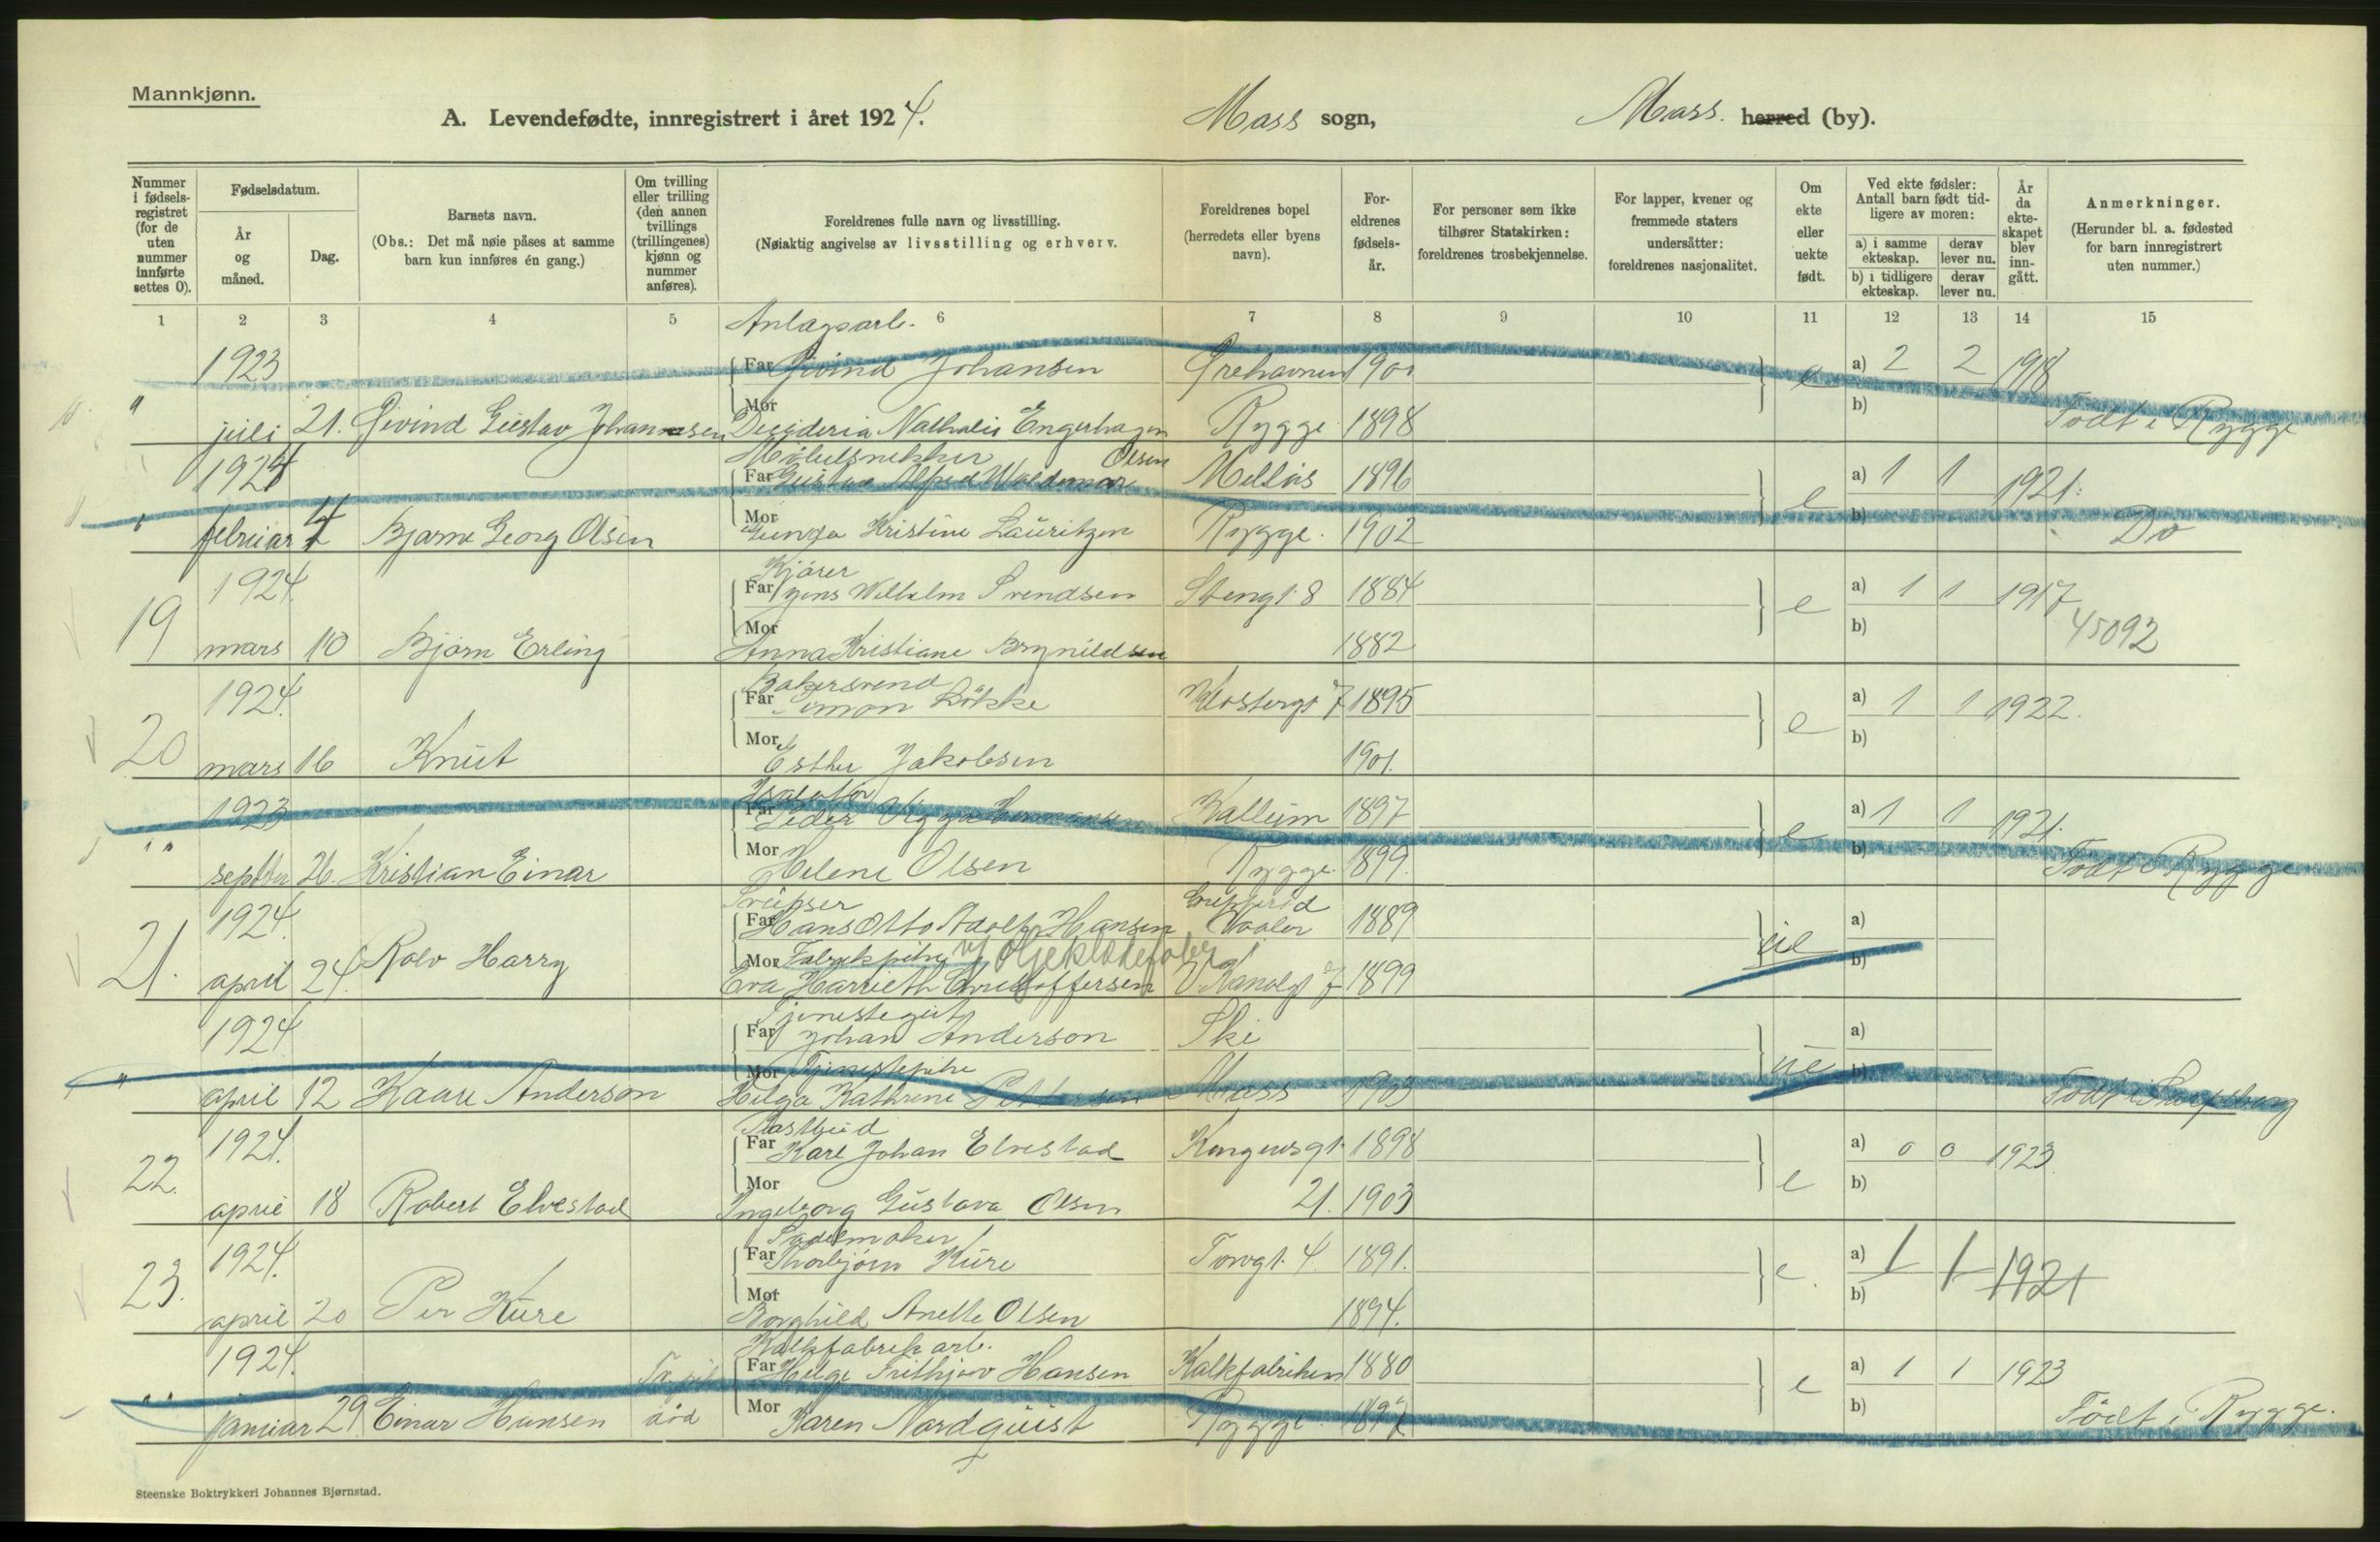 Mannkjønn.
A. Levendefødte, innregistrert i året 1924. Moss sogn, Moss. herred (by).
Nummer i fødsels-registret (for de uten nummer innførte settes 0).
Fødselsdatum.
År og måned.
Dag.
Barnets navn.
(Obs.: Det må nøie påses at samme barn kun innføres én gang.)
Om tvilling eller trilling (den annen tvillings (trillingenes) kjønn og nummer anføres).
Foreldrenes fulle navn og livsstilling.
(Nøiaktig angivelse av livsstilling og erhverv.
Foreldrenes bopel (herredets eller byens navn).
For-eldrenes fødsels-år.
For personer som ikke tilhører Statskirken: foreldrenes trosbekjennelse.
For lapper, kvener og fremmede staters undersåtter: foreldrenes nasjonalitet.
Om ekte eller uekte født.
Ved ekte fødsler: Antall barn født tid-ligere av moren:
a) i samme ekteskap. derav lever nu.
b) i tidligere ekteskap. derav lever nu.
År da ekte-skapet blev inn-gått.
Anmerkninger.
(Herunder bl. a. fødested for barn innregistrert uten nummer.)
1 2 3 4 5 6 7 8 9 10 11 12 13 14 15
Anlagsarb.
1923 Far Øivind Johansen 1900 e a) 2 2 1918
Mor b)
" juli 21. Øivind Gustav Johannsen Nathalie Engerhagen Rygge 1898 Født i Rygge
Møbelsnekker Olsen
1924 Far Gustav Alfred Waldemar Melløs 1896 e a) 1 1 1921.
Mor b)
" februar 4 Bjarne Georg Olsen Gunda Kristine Lauritzen Rygge. 1902 Do
Kjører
1924. Far Jens Wilhelm Svendsen Stengt. 8 1884 e a) 1 1 1917
Mor b) 45092
19 mars 10 Bjørn Erling Anna Kristiane Brynildsen 1882
Bakersvend
1924. Far Simon Løkke Klostergt 7 1895 e a) 1 1 1922.
Mor b)
20 mars 16 Knut Esther Jakobsen 1901.
1923 Far Peder Hermansen Kallum 1897 e a) 1 1 1921.
Mor b)
" septbr 26. Kristian Einar Helene Olsen Rygge. 1899. Født i Rygge
1924. Far Hans Otto Adolf Hansen Vaaler 1889 ue a)
Mor Fabrikpike v/ Oljeklædefabr. b)
21. april 24. Rolv Harry Eva Harrieth Christoffersen V. Kanalgt 7 1899
Tjenestegut
1924 Far Johan Anderson Ski ue a)
Mor Tjenestepike b)
" april 12 Kaare Anderson Helga Kathrine Pettersen Moss 1903 Født i Sarpsborg
Postbud
1924. Far Karl Johan Elvestad Kongensgt. 1898 e a) 0 0 1923
Mor b)
22. april 18 Robert Elvestad Ingeborg Gustava Olsen 21. 1903
Sadelmaker
1924. Far Thorbjørn Kure Torvgt. 4. 1891. e. a) 1 1 1921
Mor b)
23. april 20 Per Kure Borghild Anette Olsen 1894.
Kalkfabrik arb.
1924. Far Helge Frithjov Hansen Kalkfabriken 1880 e a) 1 1 1923
Mor b)
" januar 29. Einar Hansen død Karen Nordquist Rygge. Født i Rygge.
Steenske Boktrykkeri Johannes Bjørnstad.